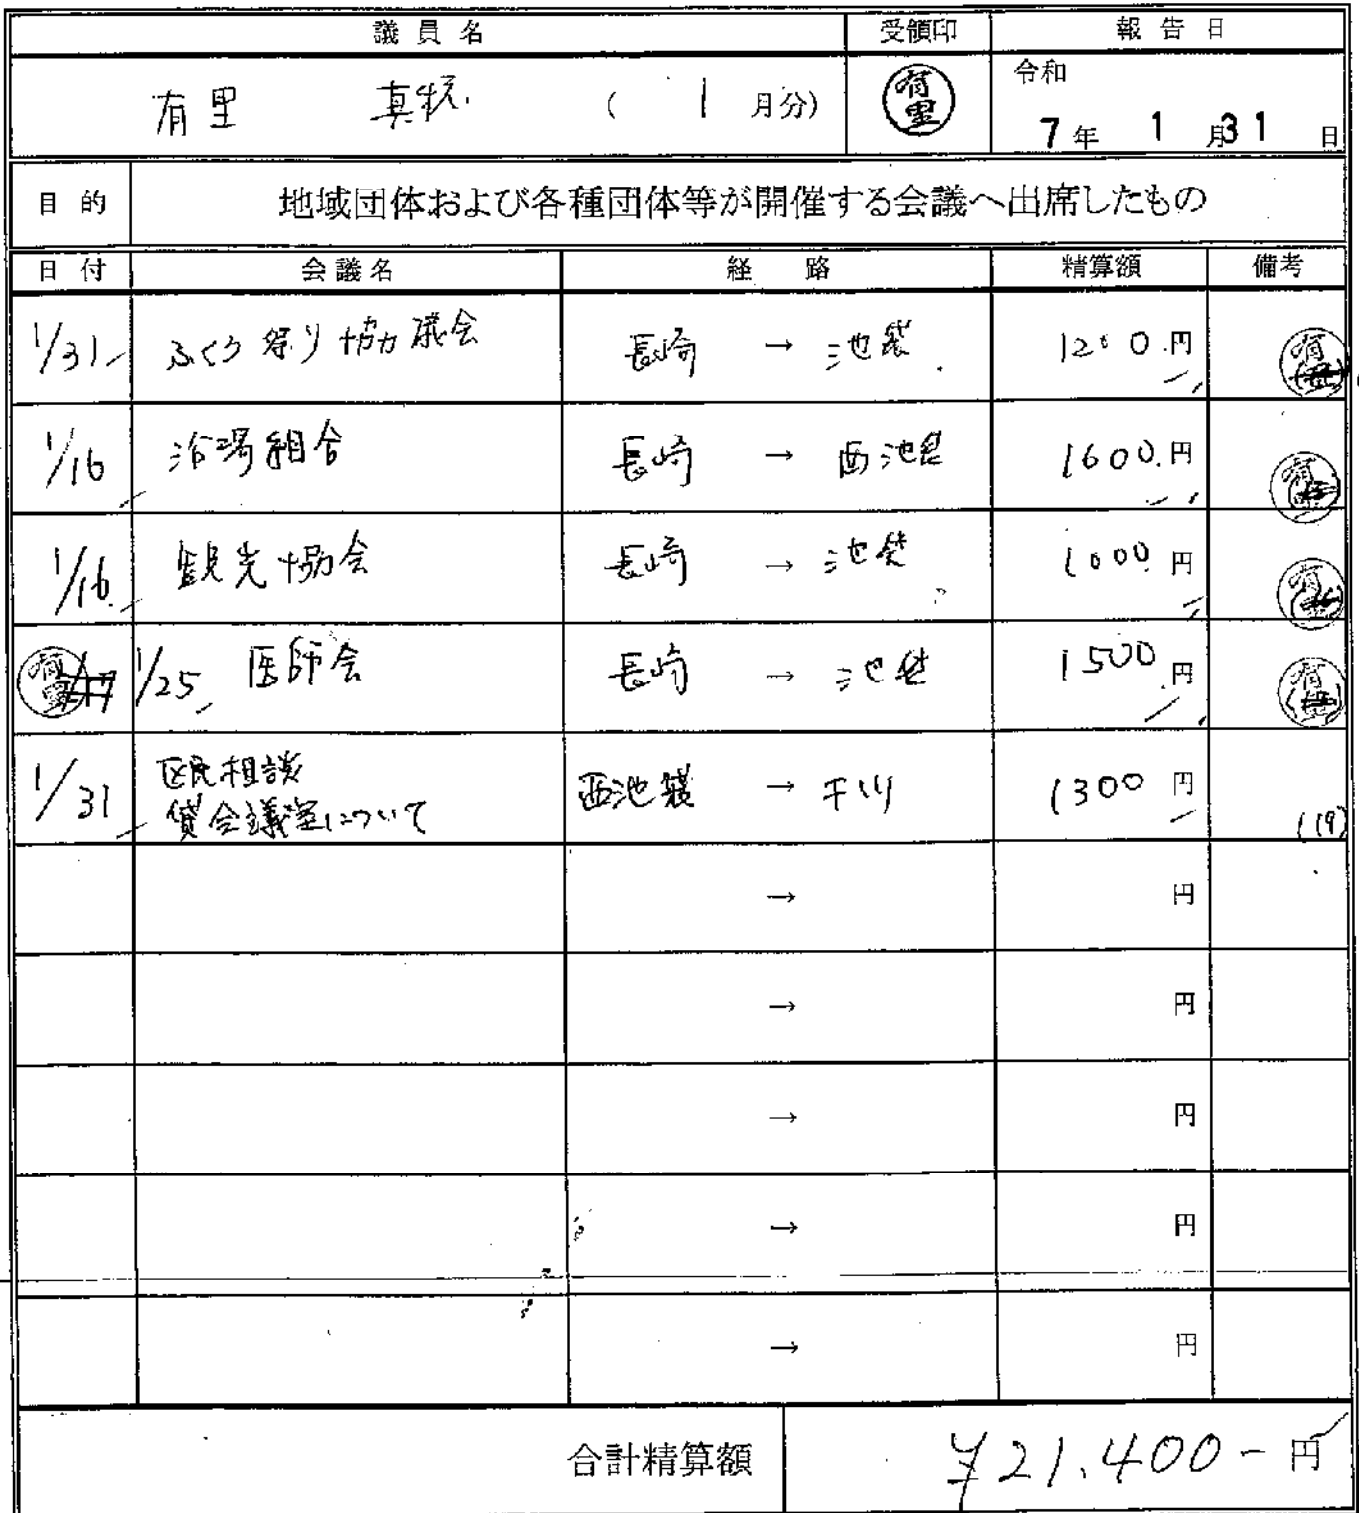 議員名 受領印 報告日
有里 真穂 ( 1 月分) 有里 令和
7年 1月31日
目的 地域団体および各種団体等が開催する会議へ出席したもの
日付 会議名 経路 精算額 備考
1/31 ふくろ祭り協議会 長崎 → 池袋 1200.円 有里
1/16 浴場組合 長崎 → 西池袋 1600.円 有里
1/16 観光協会 長崎 → 池袋 1000 円 有里
有里 1/25 医師会 長崎 → 池袋 1500 円 有里
1/31 区民相談
貸会議室について 西池袋 → 千川 1300 円 (19)
→ 円
→ 円
→ 円
→ 円
→ 円
合計精算額 ¥21.400-円